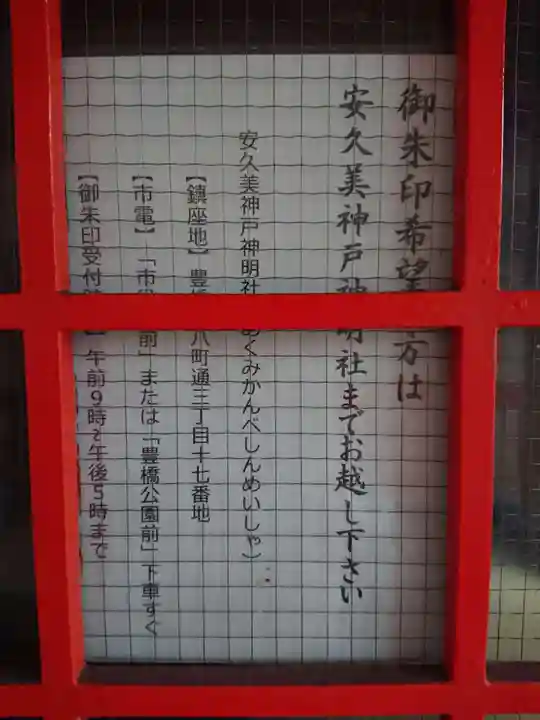 御朱印希望 方は
安久美神戸神明社までお越し下さい
安久美神戸神明社 あくみかんべしんめいしゃ）
【鎮座地】 豊橋 八町通三丁目十七番地
【市電】 「市役 前」または「豊橋公園前」下車すぐ
【御朱印受付 】 午前9時～午後5時まで